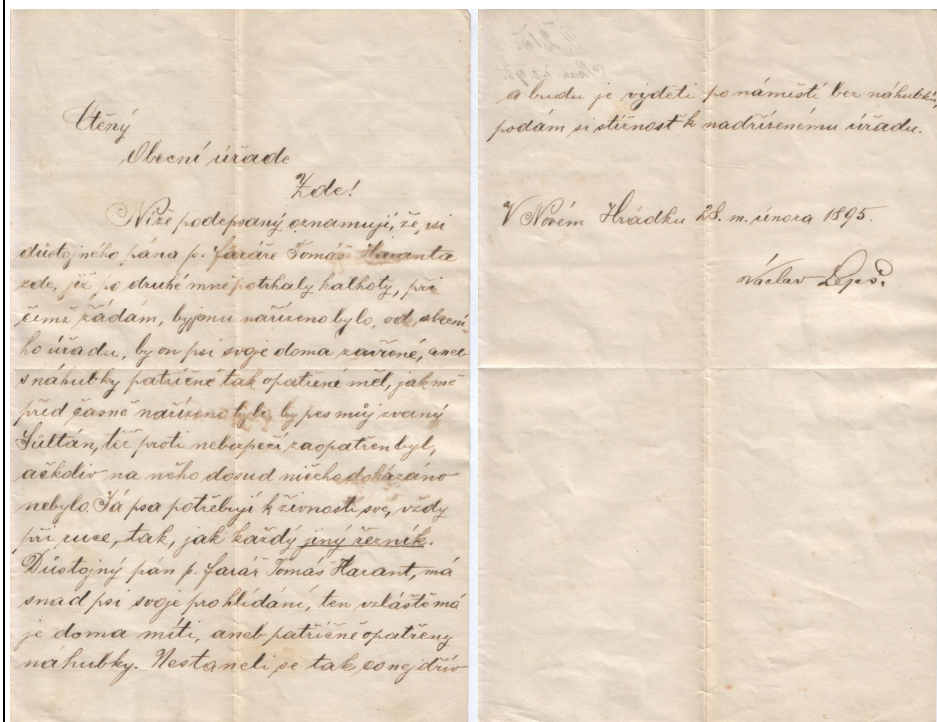 Ctěný
Obecní úřade
Zde!
Níže podepsaný oznamuji, že psi
důstojného pána p. faráře Tomáš Haranta
zde, již po druhé mně potrhaly kalhoty, při
čemž žádám, by jemu nařízeno bylo, od obecní-
ho úřadu, by on psi svoje doma zavřené, aneb
s náhubky patřičně tak opatřené měl, jak mě
před časně nařízeno bylo, by pes můj zvaný
Sultán, tíž proti nebezpečí zaopatřen byl,
ačkoliv na něho dosud ničeho dokázáno
nebylo. Já psa potřebuji k živnosti své, vždy
při ruce, tak, jak každý jiný řezník.
Důstojný pán p. farář Tomáš Harant, má
snad psi svoje pro hlídání, ten vzláště má
je doma míti, aneb patřičně opatřeny
náhubky. Nestaneli se tak co nejdřív
a budu je vyděti po náměstí bez náhubků,
podám si stížnost k nadřízenému úřadu.
V Novém Hrádku 28. m. února 1895.
Václav Lepš.